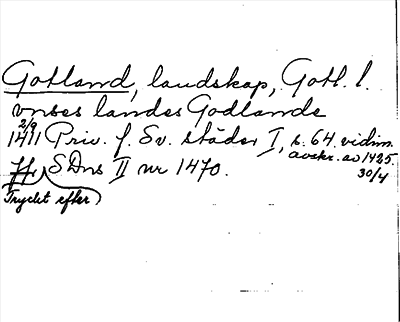 Gotland, landskap, Gotl. l.
vnses landes Godlande
2/9
1411 Priv. f. Sv. städer I, s. 64. vidim.
avskr. av 1425
30/4
SDns II nr 1470.
Tryckt efter